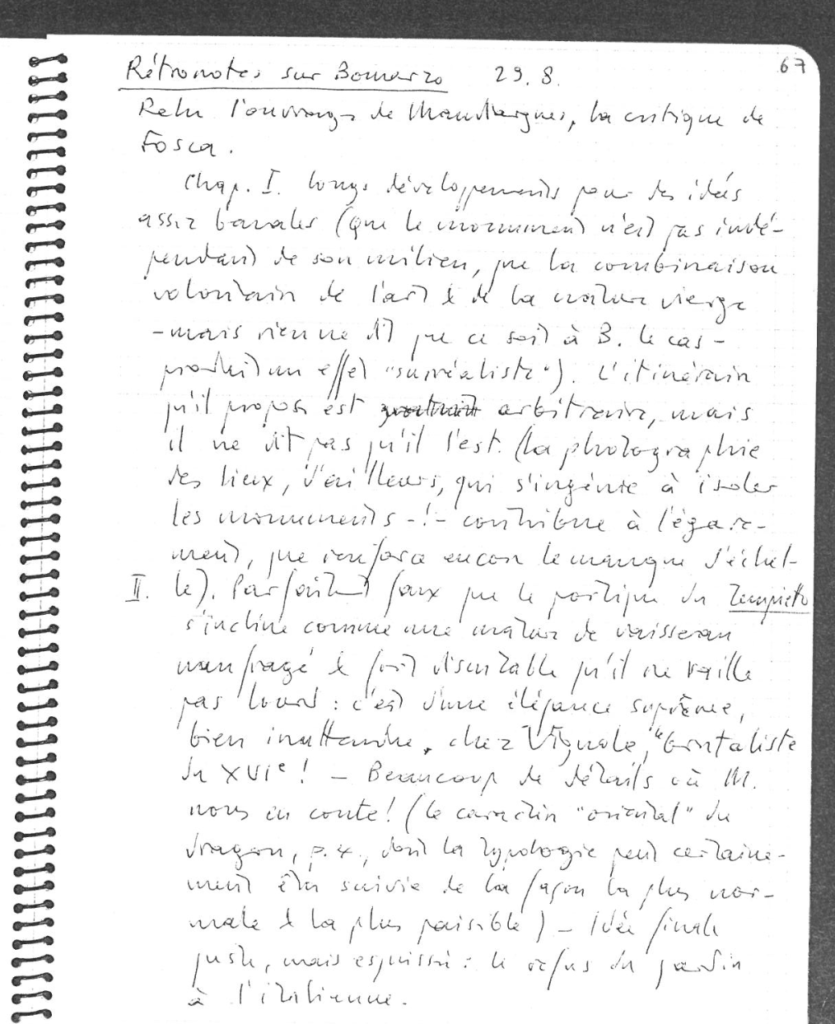 67
Rétronotes sur Bomarzo 29.8.
Relu l'ouvrage de Mandiargues, la critique de
Fosca.
Chap. I. longs développements pour des idées
assez banales (que le monument n'est pas indé-
pendant de son milieu, que la combinaison
volontaire de l'art & de la nature vierge
- mais rien ne dit que ce soit à B. le cas -
produit un effet "surréaliste"). L'itinéraire
qu'il propose est arbitraire, mais
il ne dit pas qu'il l'est. (la photographie
des lieux, d'ailleurs, qui s'ingénie à isoler
les monuments -!- contribue à l'égare-
ment, que renforce encore le manque d'échel-
II. le). Parfait faux que le portique du Tempietto
s'incline comme une mature de vaisseau
naufragé & fort discutable qu'il ne vaille
pas lourd : c'est d'une élégance suprême,
bien inattendue, chez Vignole, "brutaliste
du XVIe ! - Beaucoup de détails où M.
nous en conte ! (le caractère "oriental" du
dragon, p.4., dont la typologie peut certaine-
ment être suivie de la façon la plus nor-
male & la plus paisible) - Idée finale
juste, mais esquissée : le refus du jardin
à l'italienne.